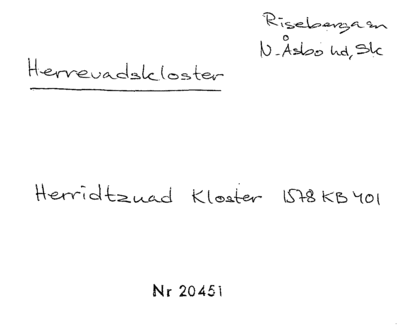 Riseberga sn
N. Åsbo hd, Sk
Herrevadskloster
Herridtzuad Kloster 1578 KB 401
Nr 20451